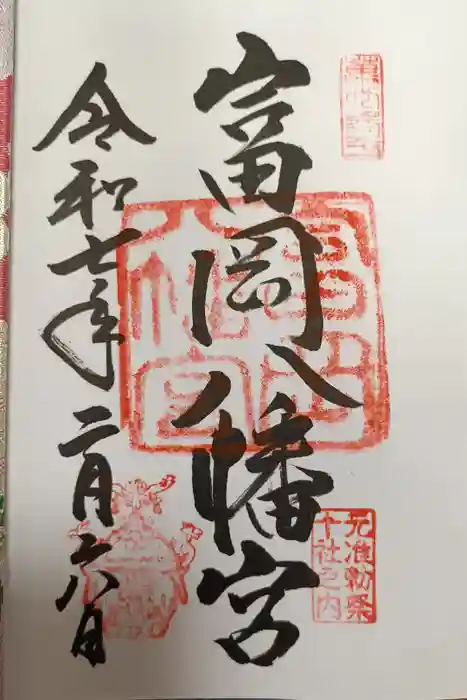 富岡八幡宮
元准勅祭
十社之内
令和七年二月六日